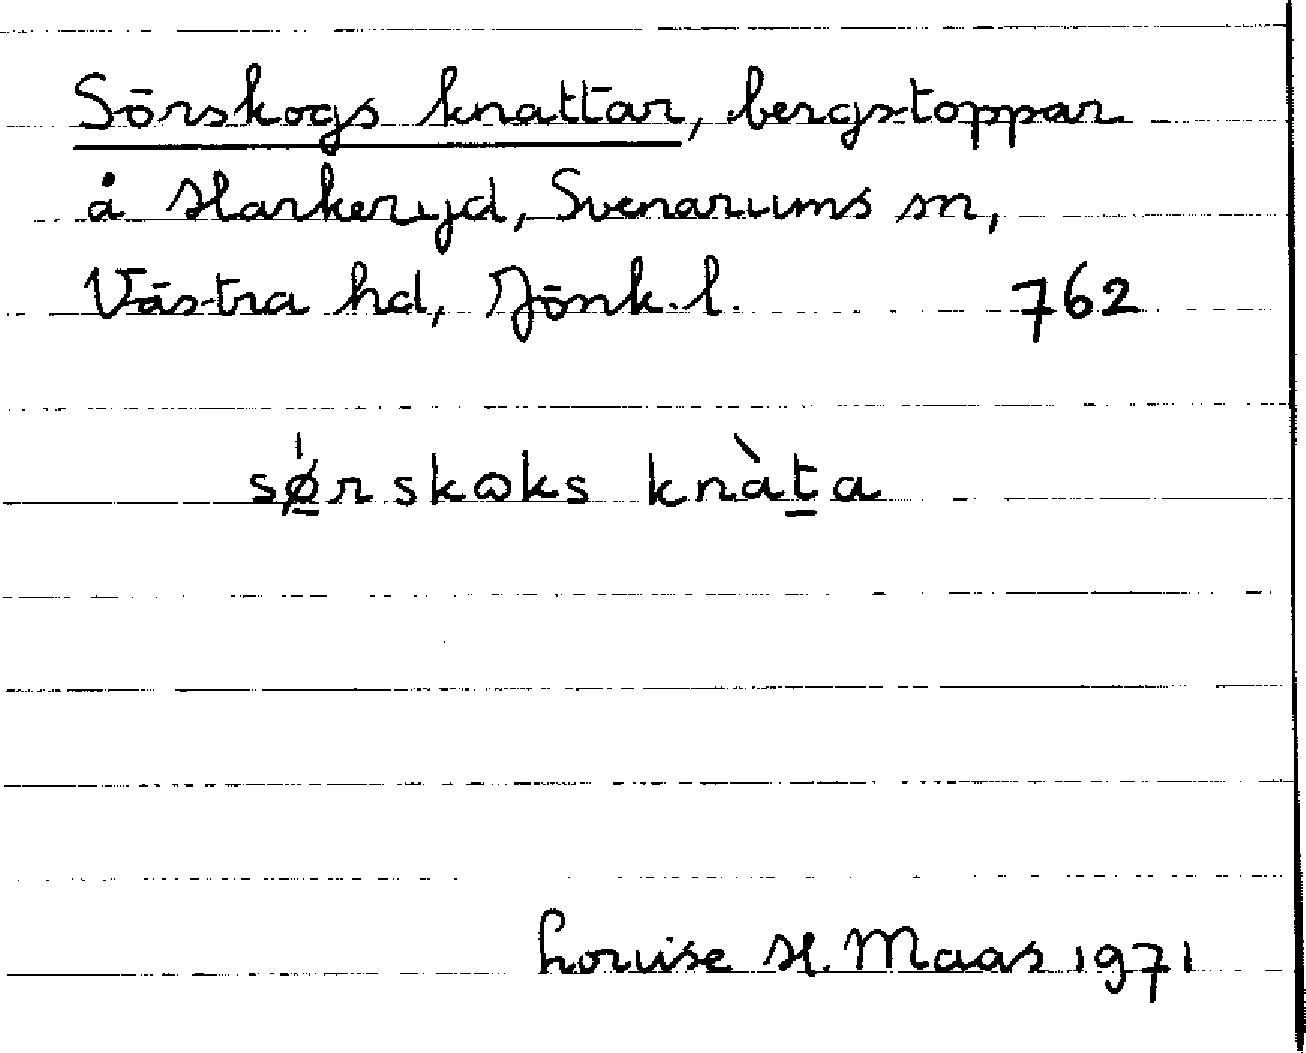 Sörskogs knattar, bergstoppar
å Harkeryd, Svenarums sn,
Västra hd, Jönk. l. 762
sǿ̲rskɷks knàt̲a
Louise H. Maas 1971